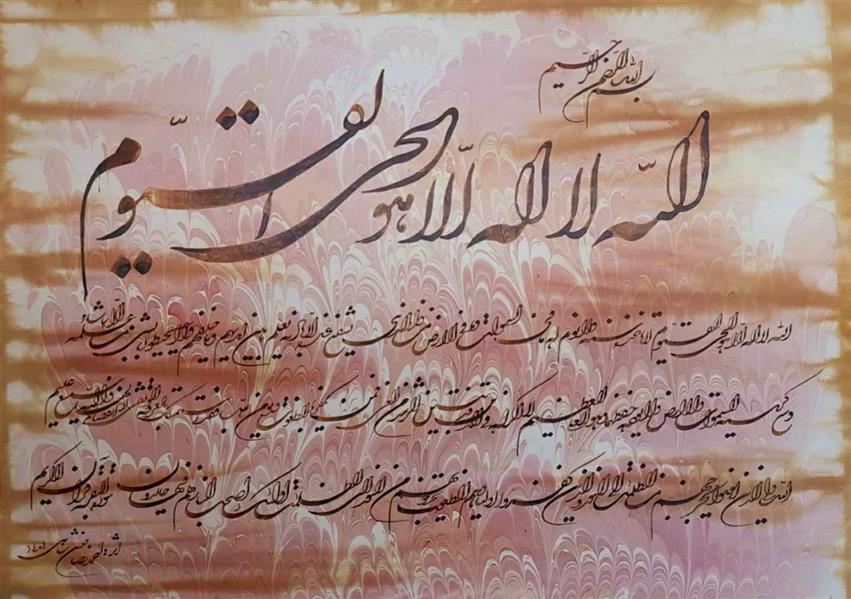 بسم الله الرحمن الرحیم
الله لا اله الا هو الحی القیوم
الله لا اله الا هو الحی القیوم لا تاخذه سنة و لا نوم له ما فی السموات و ما فی الارض من ذا الذی یشفع عنده الا باذنه یعلم ما بین ایدیهم و ما خلفهم و لا یحیطون بشیء من علمه الا بما شاء
وسع کرسیه السموات و الارض و لا یؤده حفظهما و هو العلی العظیم لا اکراه فی الدین قد تبین الرشد من الغی فمن یکفر بالطاغوت و یؤمن بالله فقد استمسک بالعروة الوثقی لا انفصام لها و الله سمیع علیم
الله ولی الذین امنوا یخرجهم من الظلمات الی النور و الذین کفروا اولیاؤهم الطاغوت یخرجونهم من النور الی الظلمات اولئک اصحاب النار هم فیها خالدون